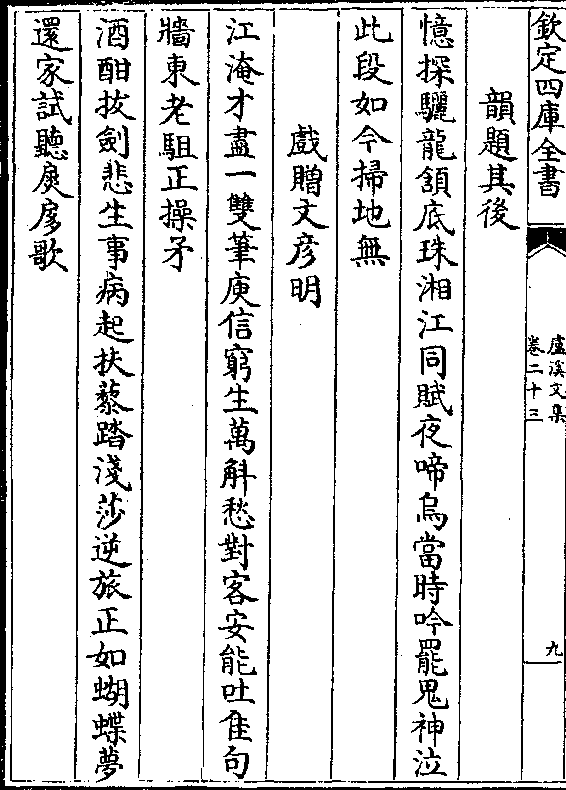 欽定四庫全書
盧溪文集
卷二十三
九
韻題其後
憶探驪龍頷底珠湘江同賦夜啼烏當時吟罷鬼神泣
此段如今掃地無
戲贈文彦明
江淹才盡一雙筆庾信窮生萬斛愁對客安能吐隹句
牆東老駔正操矛
酒酣拔劍悲生事病起扶藜踏淺莎逆旅正如蝴蝶夢
還家試聽扊扅歌